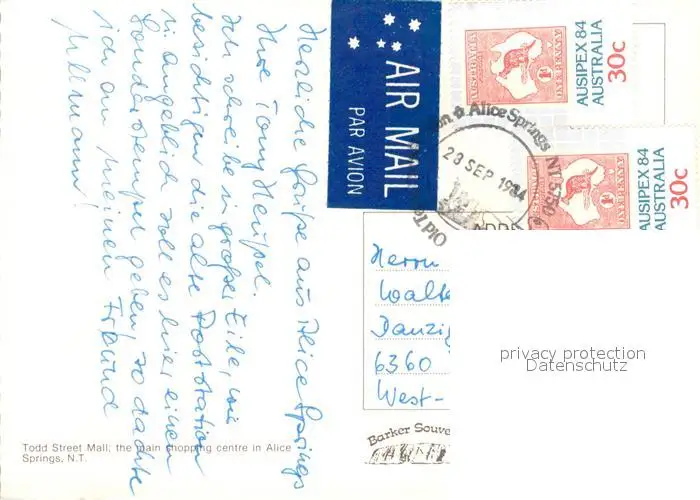 Herzliche Grüße aus Alice Springs
Ihre Tony
Ich schreibe in großer Eile, wir
besichtigen die alte Poststation
in angeblich soll es hier einen
Sonderstempel geben, so dachte
ich an meinen Freund
AIR MAIL
PAR AVION
AUSIPEX 84
AUSTRALIA
30c
AUSIPEX 84
AUSTRALIA
30c
Alice Springs NT 5750
28 SEP 1984
Herrn
Danzig
6360
West-
privacy protection
Datenschutz
Barker Souve
Todd Street Mall; the main shopping centre in Alice
Springs, N.T.